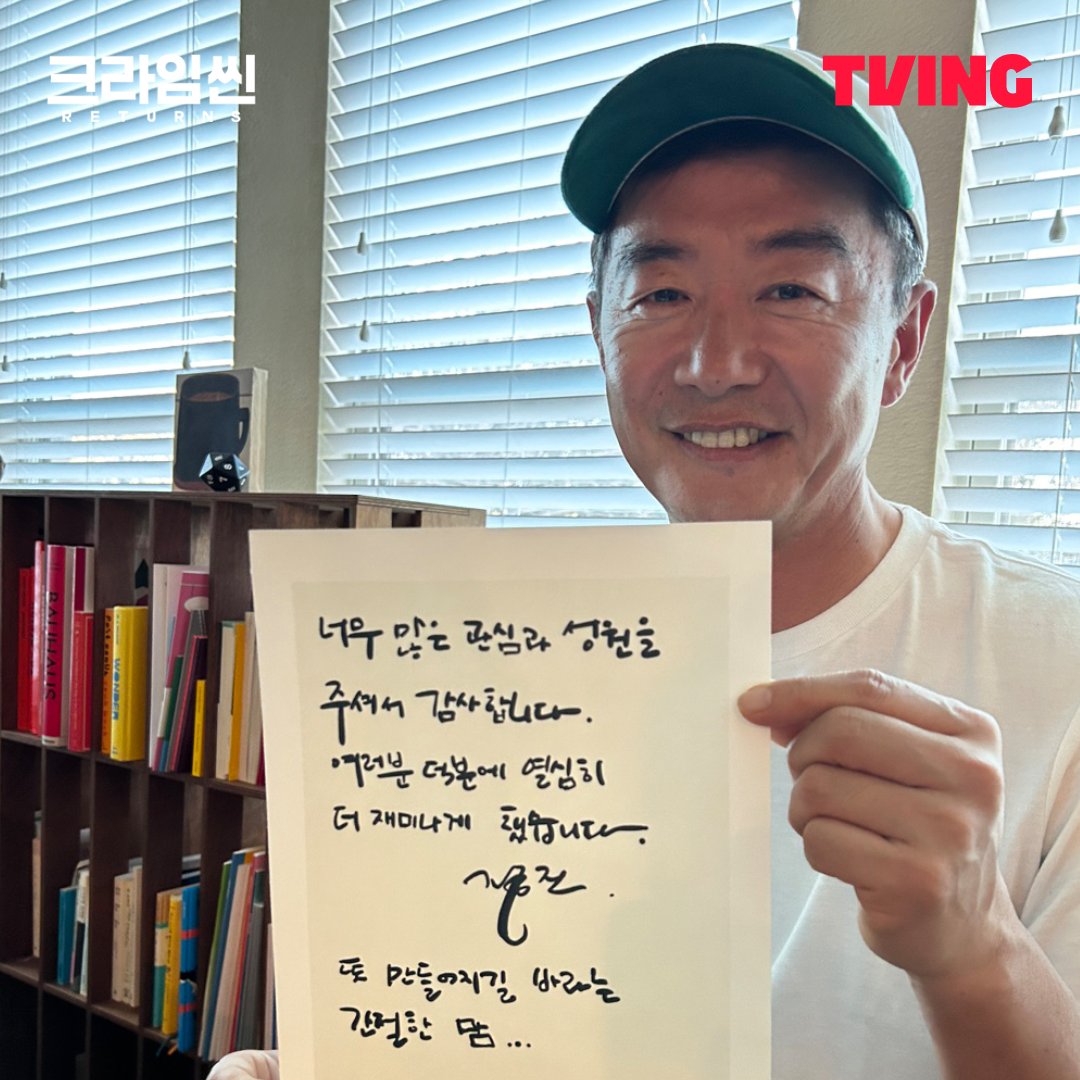 크라임씬
RETURNS
TVING
너무 많은 관심과 성원을
주셔서 감사합니다.
여러분 덕분에 열심히
더 재미나게 했습니다.
또 만들어지길 바라는
간절한 맘...
BAUHAUS
WONDER